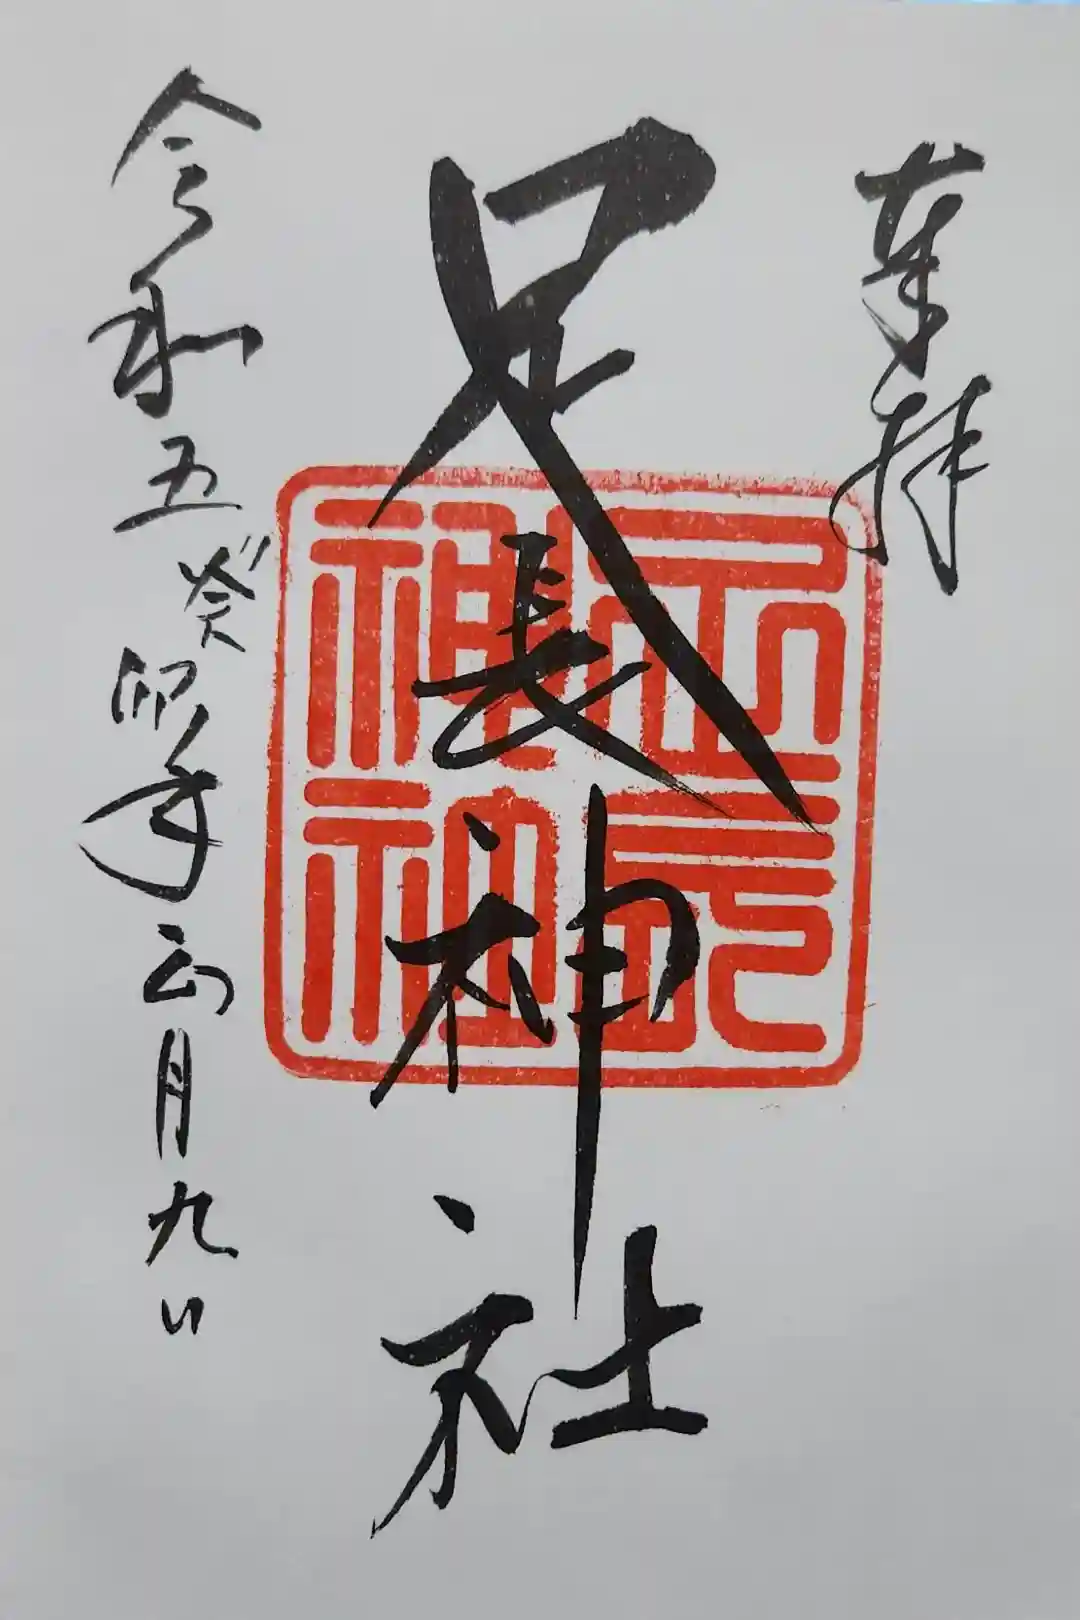 奉拝
足長神社
足長
神社
令和五癸卯年 月九日